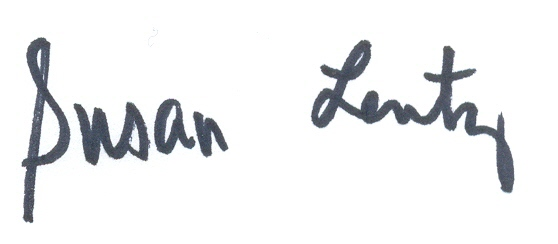 Susan Lentz